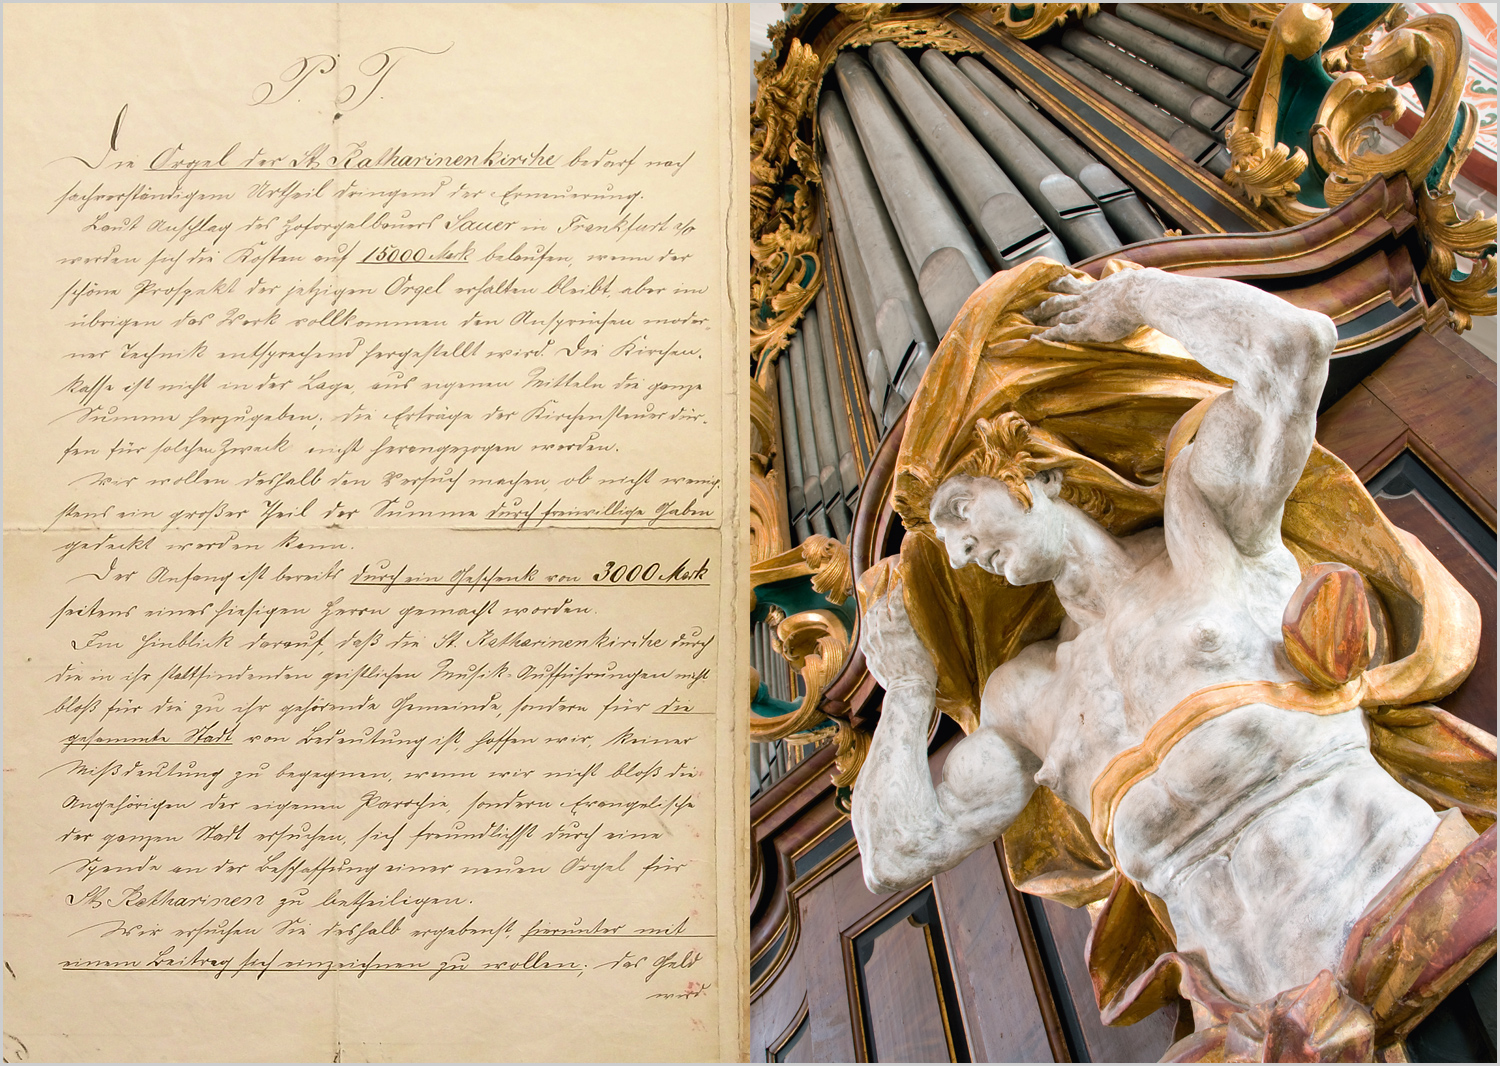 P. T.
Die Orgel der St. Katharinenkirche bedarf nach
sachverständigem Urtheil dringend der Erneuerung.
Laut Anschlag des Hoforgelbauers Sauer in Frankfurt a/o
werden sich die Kosten auf 15000 Mark belaufen, wenn der
schöne Prospekt der jetzigen Orgel erhalten bleibt, aber im
übrigen das Werk vollkommen den Ansprüchen moder-
ner Technik entsprechend hergestellt wird. Die Kirchen-
kasse ist nicht in der Lage, aus eigenen Mitteln die ganze
Summe herzugeben; die Erträge der Kirchensteuer dür-
fen für solchen Zweck nicht herangezogen werden.
Wir wollen deshalb den Versuch machen, ob nicht wenig-
stens ein großer Theil der Summe durch freiwillige Gaben
gedeckt werden kann.
Der Anfang ist bereits durch ein Geschenk von 3000 Mark
seitens eines hiesigen Herrn gemacht worden.
Im Hinblick darauf, daß die St. Katharinenkirche durch
die in ihr stattfindenden geistlichen Musik-Aufführungen nicht
bloß für die zu ihr gehörende Gemeinde, sondern für die
gesammte Stadt von Bedeutung ist hoffen wir, keiner
Mißdeutung zu begegnen, wenn wir nicht bloß die
Angehörigen der eigenen Parochie, sondern Evangelische
der ganzen Stadt ersuchen, sich freundlichst durch eine
Spende an der Beschaffung einer neuen Orgel für
St. Katharinen zu betheiligen.
Wir ersuchen Sie deshalb ergebenst, hierunter mit
einem Beitrag sich einzeichnen zu wollen; das Geld
wird